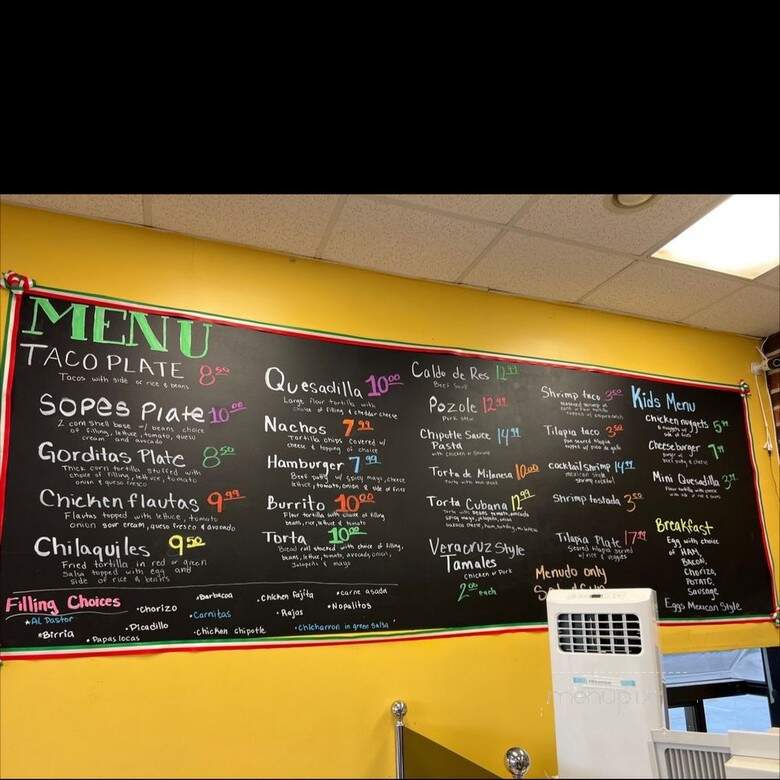 MENU
TACO PLATE 8 50
Tacos with side or rice & beans
Sopes Plate 10 00
2 corn shell base w/ beans choice
of filling, lettuce, tomato, queso
cream and avocado
Gorditas Plate 8 50
Thick corn tortilla stuffed with
choice of filling, lettuce, tomato
onion & queso fresco
Chicken flautas 9 99
Flautas topped with lettuce, tomato
onion sour cream, queso fresco & avocado
Chilaquiles 9 50
Fried tortilla in red or green
Salsa topped with egg and
side of rice & beans
Quesadilla 10 00
Large flour tortilla with
choice of filling & cheddar cheese
Nachos 7 99
Tortilla chips covered w/
cheese & topping of choice
Hamburger 7 99
Beef patty w/ spicy mayo, cheese
lettuce, tomato, onion & side of fries
Burrito 10 00
Flour tortilla with choice of filling
beans, rice, lettuce & tomato
Torta 10 00
Bread roll stuffed with choice of filling,
beans, lettuce, tomato, avocado, onion,
Jalapeño & mayo
Caldo de Res 12 99
Beef Soup
Pozole 12 99
Pork stew
Chipotle Sauce 14 99
Pasta
with chicken or shrimp
Torta de Milanesa 10 00
Torta Cubana 12 99
Veracruz Style
Tamales
chicken or Pork
2 00 each
Shrimp taco 3 50
Tilapia taco 3 50
cocktail shrimp 14 99
mexican style
shrimp cocktail
Shrimp tostada 3 50
Tilapia Plate 17 99
Seared tilapia served
w/ rice & veggies
Menudo only
Kids Menu
Chicken nuggets 5 99
Cheeseburger 7 99
Mini Quesadilla 3 99
Breakfast
Egg with choice
of HAM,
BACON,
CHORIZO,
POTATO,
SAUSAGE
Eggs Mexican Style
Filling Choices
• Al Pastor
• Birria
• Chorizo
• Picadillo
• Papas locas
• Barbacoa
• Carnitas
• Chicken chipotle
• Chicken Fajita
• Rajas
• Chicharron in green salsa
• carne asada
• Nopalitos
menupix